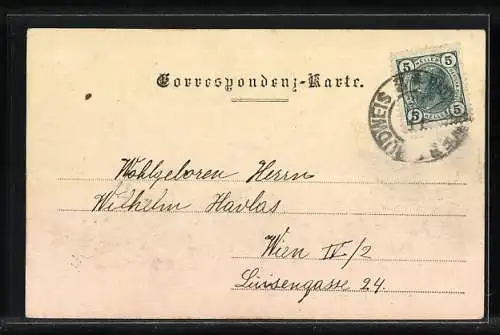 Correspondenz-Karte.
5 5
HELLER
5 5
BUDWEIS
Wohlgeboren Herrn
Wilhelm Havlas
Wien IV/2
Luisengasse 24.